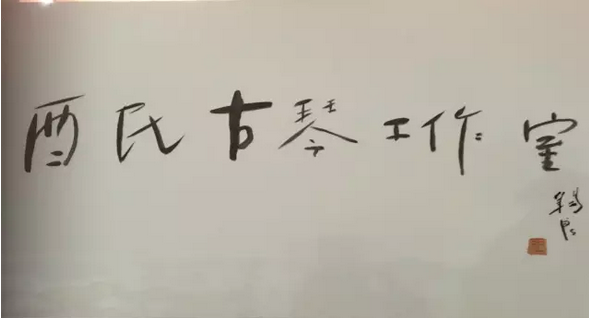 酉氏古琴工作室